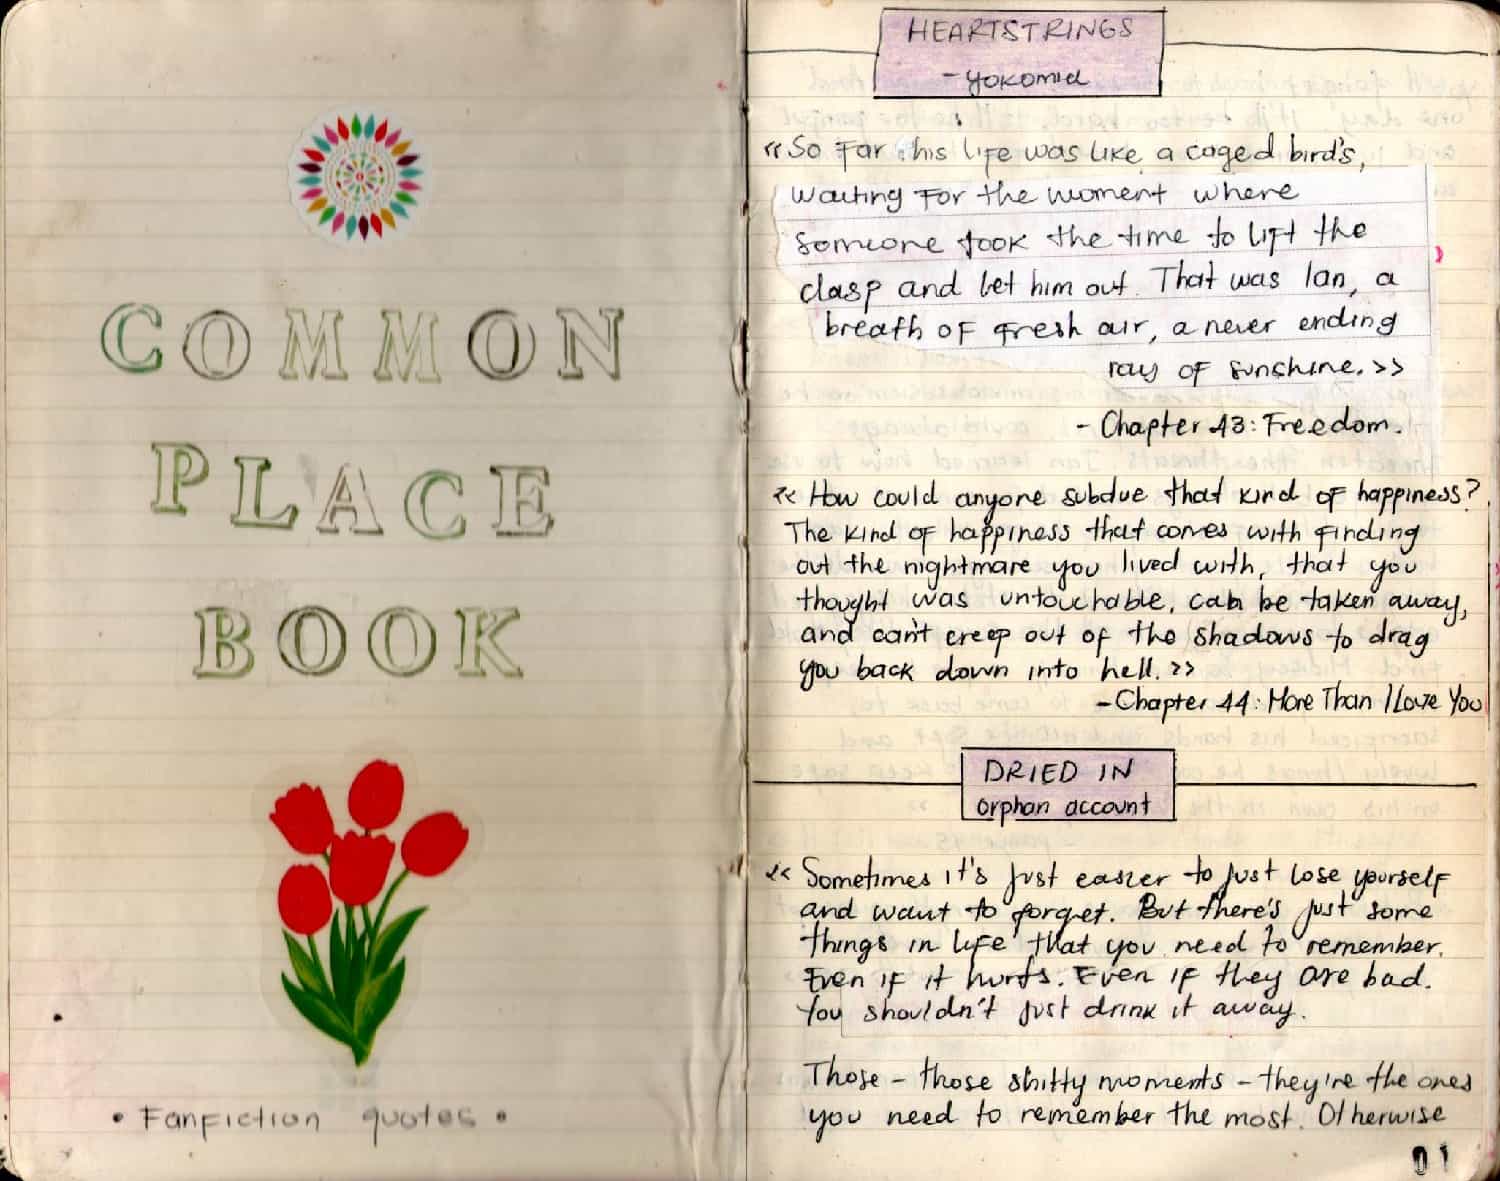 COMMON
PLACE
BOOK
• Fanfiction quotes •
HEARTSTRINGS
- yokomid
«So far his life was like a caged bird's,
waiting for the moment where
someone took the time to lift the
clasp and let him out. That was Ian, a
breath of fresh air, a never ending
ray of sunshine.»
- Chapter 43: Freedom.
« How could anyone subdue that kind of happiness?
The kind of happiness that comes with finding
out the nightmare you lived with, that you
thought was untouchable, can be taken away,
and can't creep out of the shadows to drag
you back down into hell.»
- Chapter 44: More Than I Love You
DRIED IN
orphan account
« Sometimes it's just easier to just lose yourself
and want to forget. But there's just some
things in life that you need to remember.
Even if it hurts. Even if they are bad.
You shouldn't just drink it away.
Those - those shitty moments - they're the ones
you need to remember the most. Otherwise
01